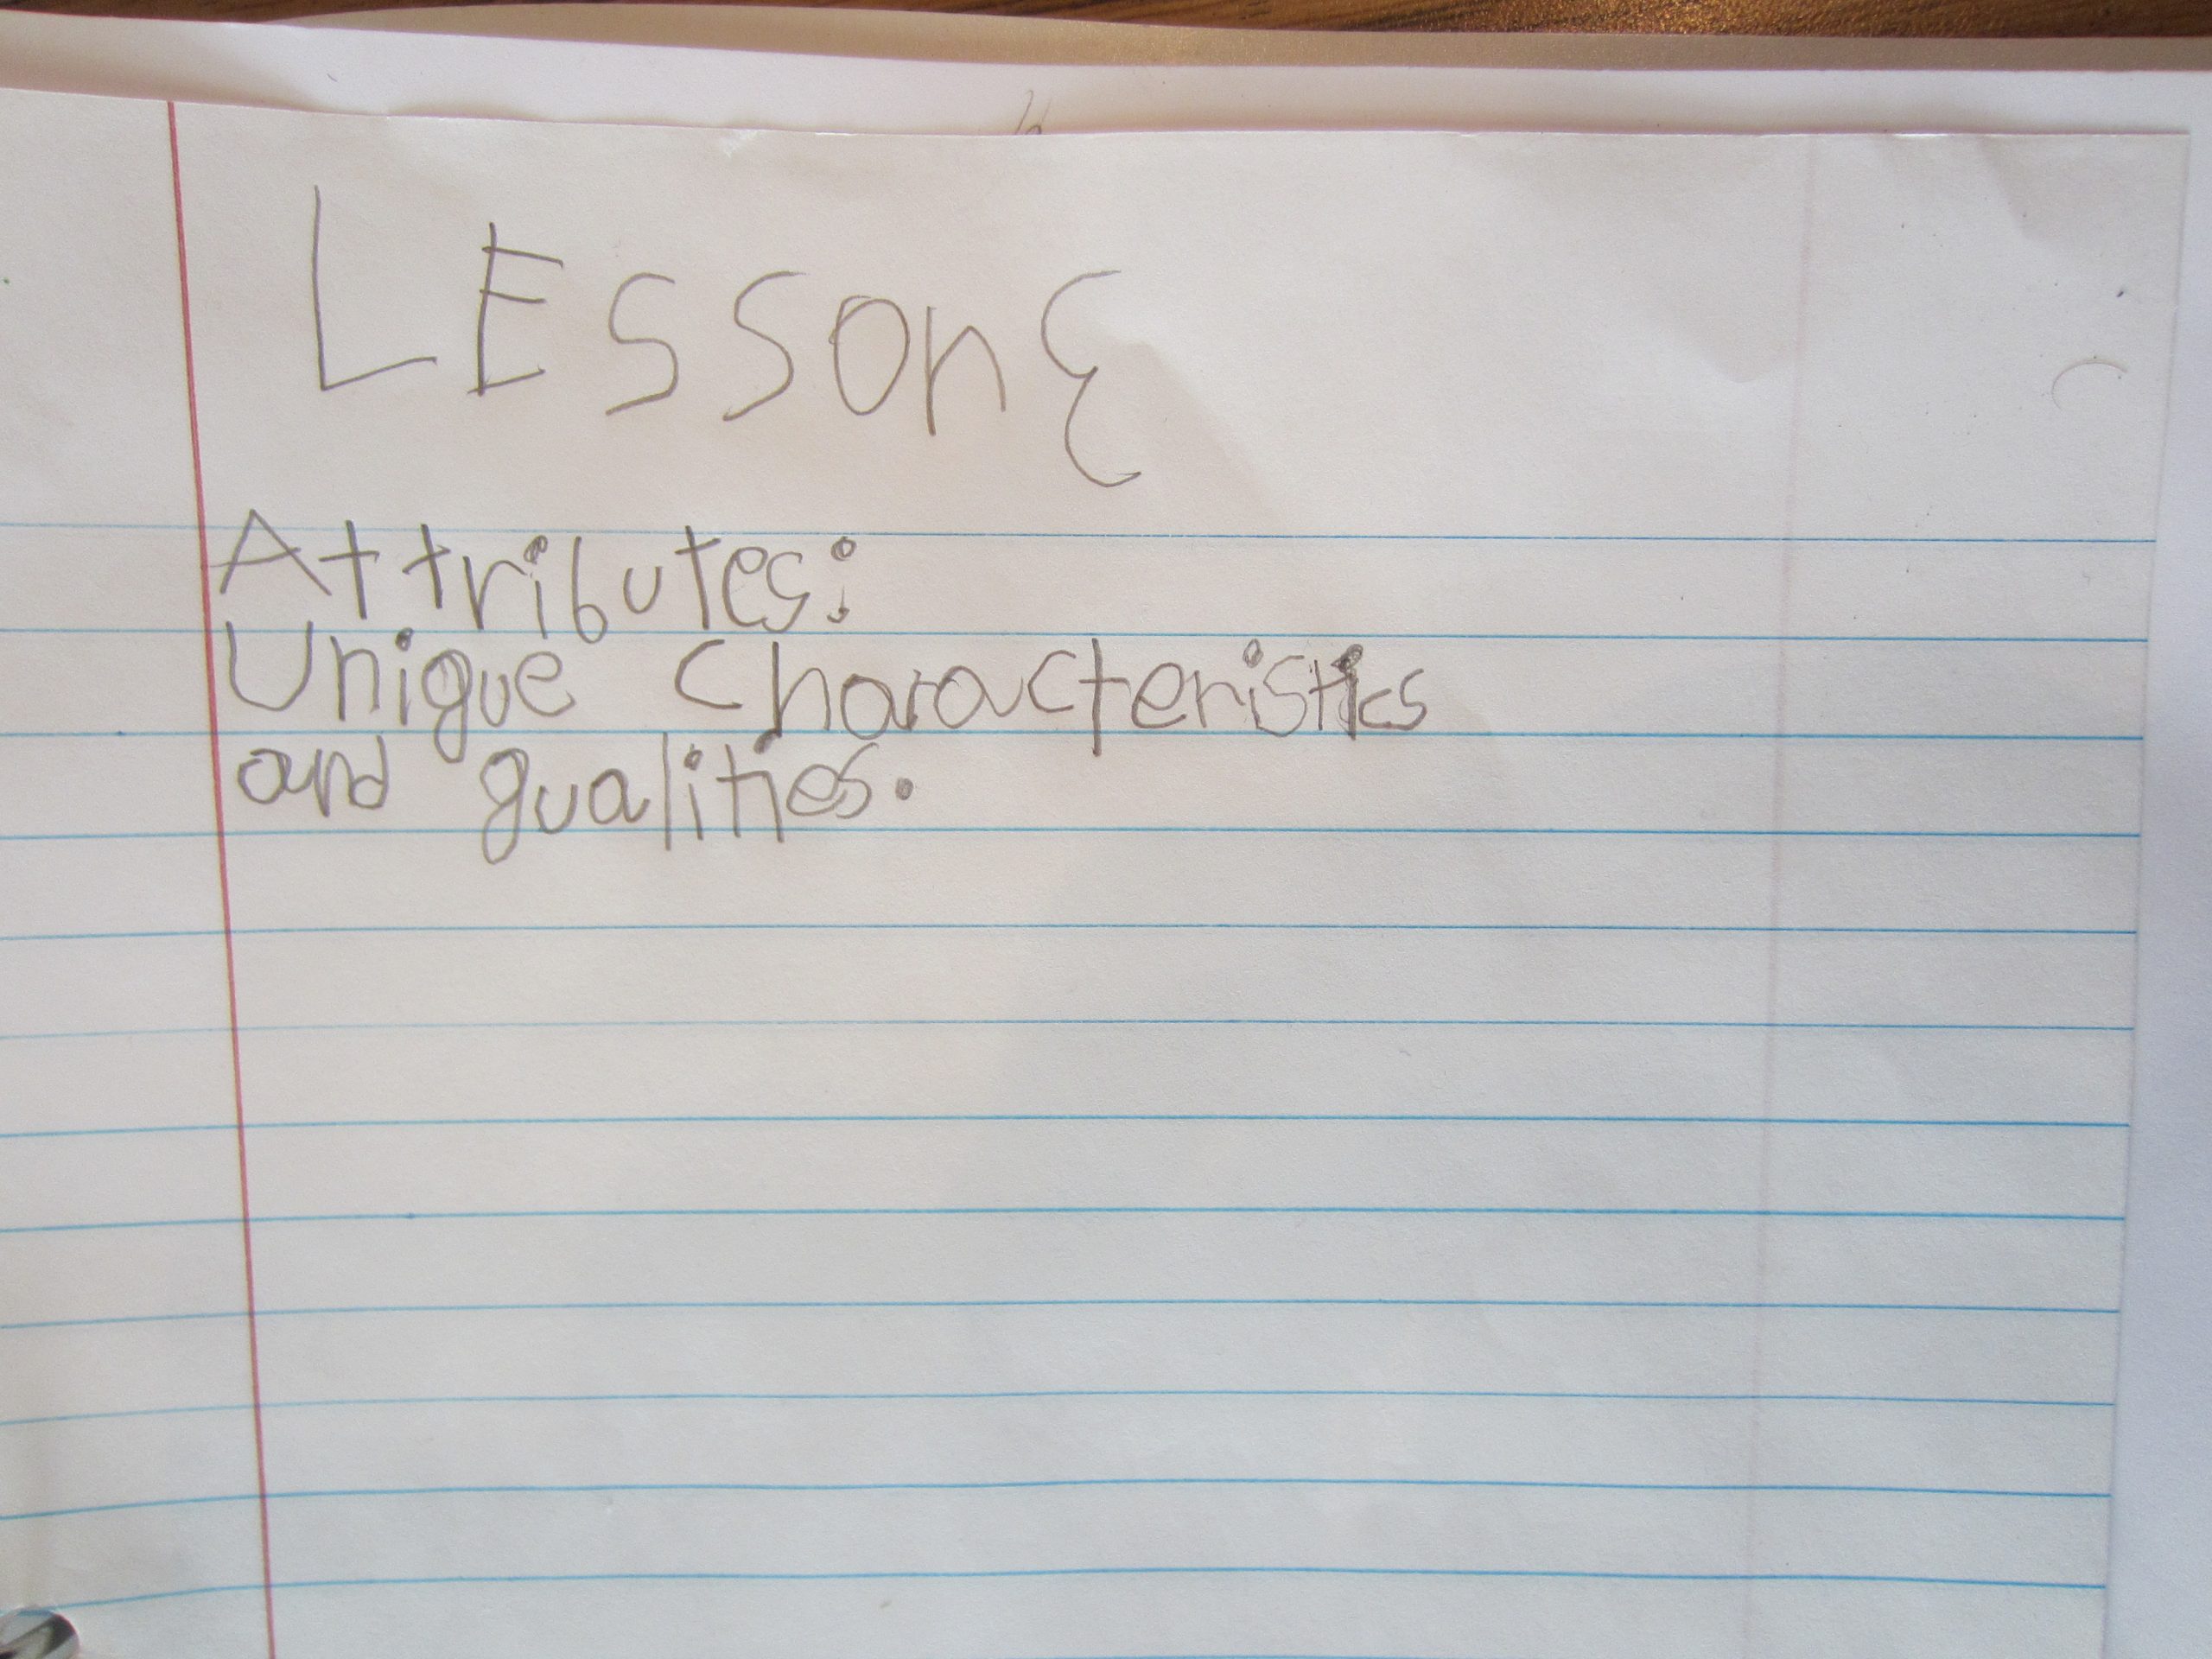 LEssonƐ
Attributes:
Unique Characteristics
and qualities.